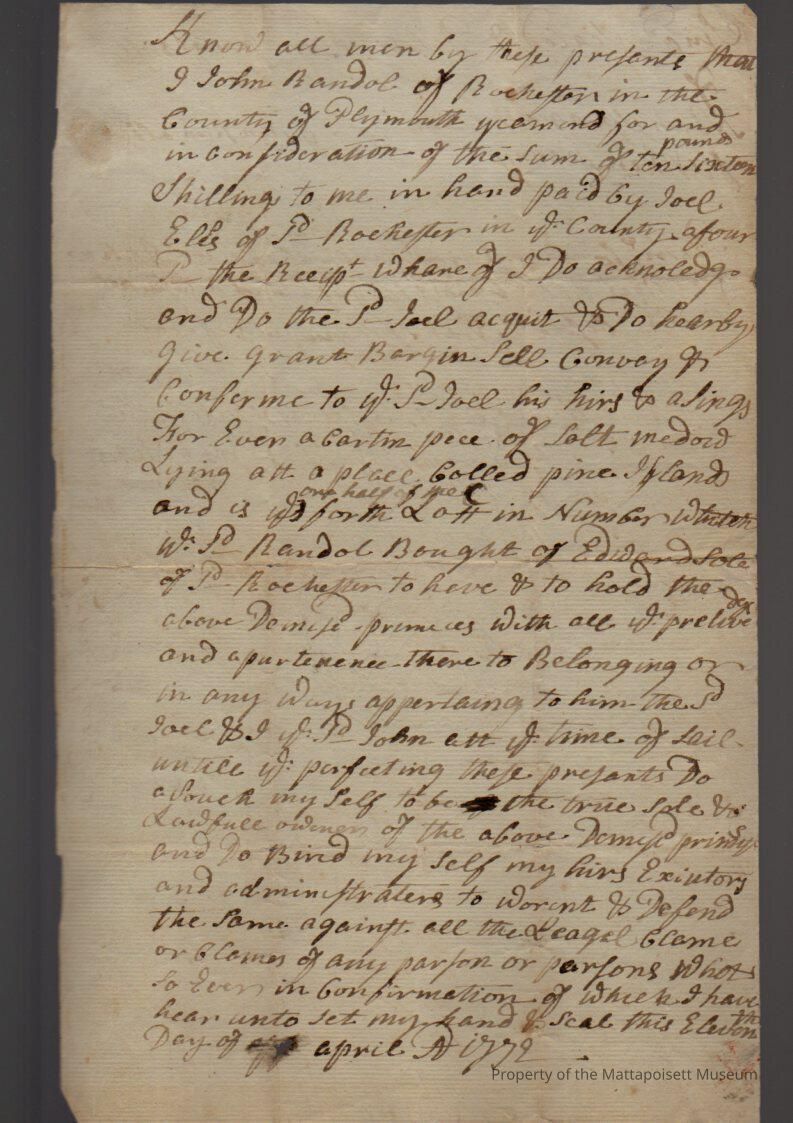 Know all men by these presents that
I John Randol of Rochester in the
County of Plymouth yeamond for and
in Consideration of the sum of ten pounds sixten
Shilling to me in hand paid by Joel
Ells of Sd Rochester in ye County afour
Sd the Receipt whare of I Do acknoledg
and Do the Sd Joel acquit & Do hearby
Give grant Bargin Sell Convay &
Conferme to ye Sd Joel his hirs & asings
For Ever a Cartin pece of Salt medoid
Lying att a place Colled pine Island
and is ye one half of the forth Lott in Number which
ye Sd Randol Bought of Edward Sole
of Sd Rochester to have & to hold the
above Demisd premices with all ye priveledg
and apurtenence there to Belonging or
in any ways appertaing to him the Sd
Joel & I ye Sd John att ye time of Sail
untill ye perfecting these presants Do
avouch my Self to be the true Sole &
Lawfull owner of the above Demisd
and Do Bind my Self my hirs Exiutors
and adminstraters to worent & Defend
the Same against all the Leagel Clame
or Clames of any parson or parsons whot
so Ever in Confirmation of which I have
hear unto Set my hand & Seal this Eleventh
Day of april AD 1772
Property of the Mattapoisett Museum